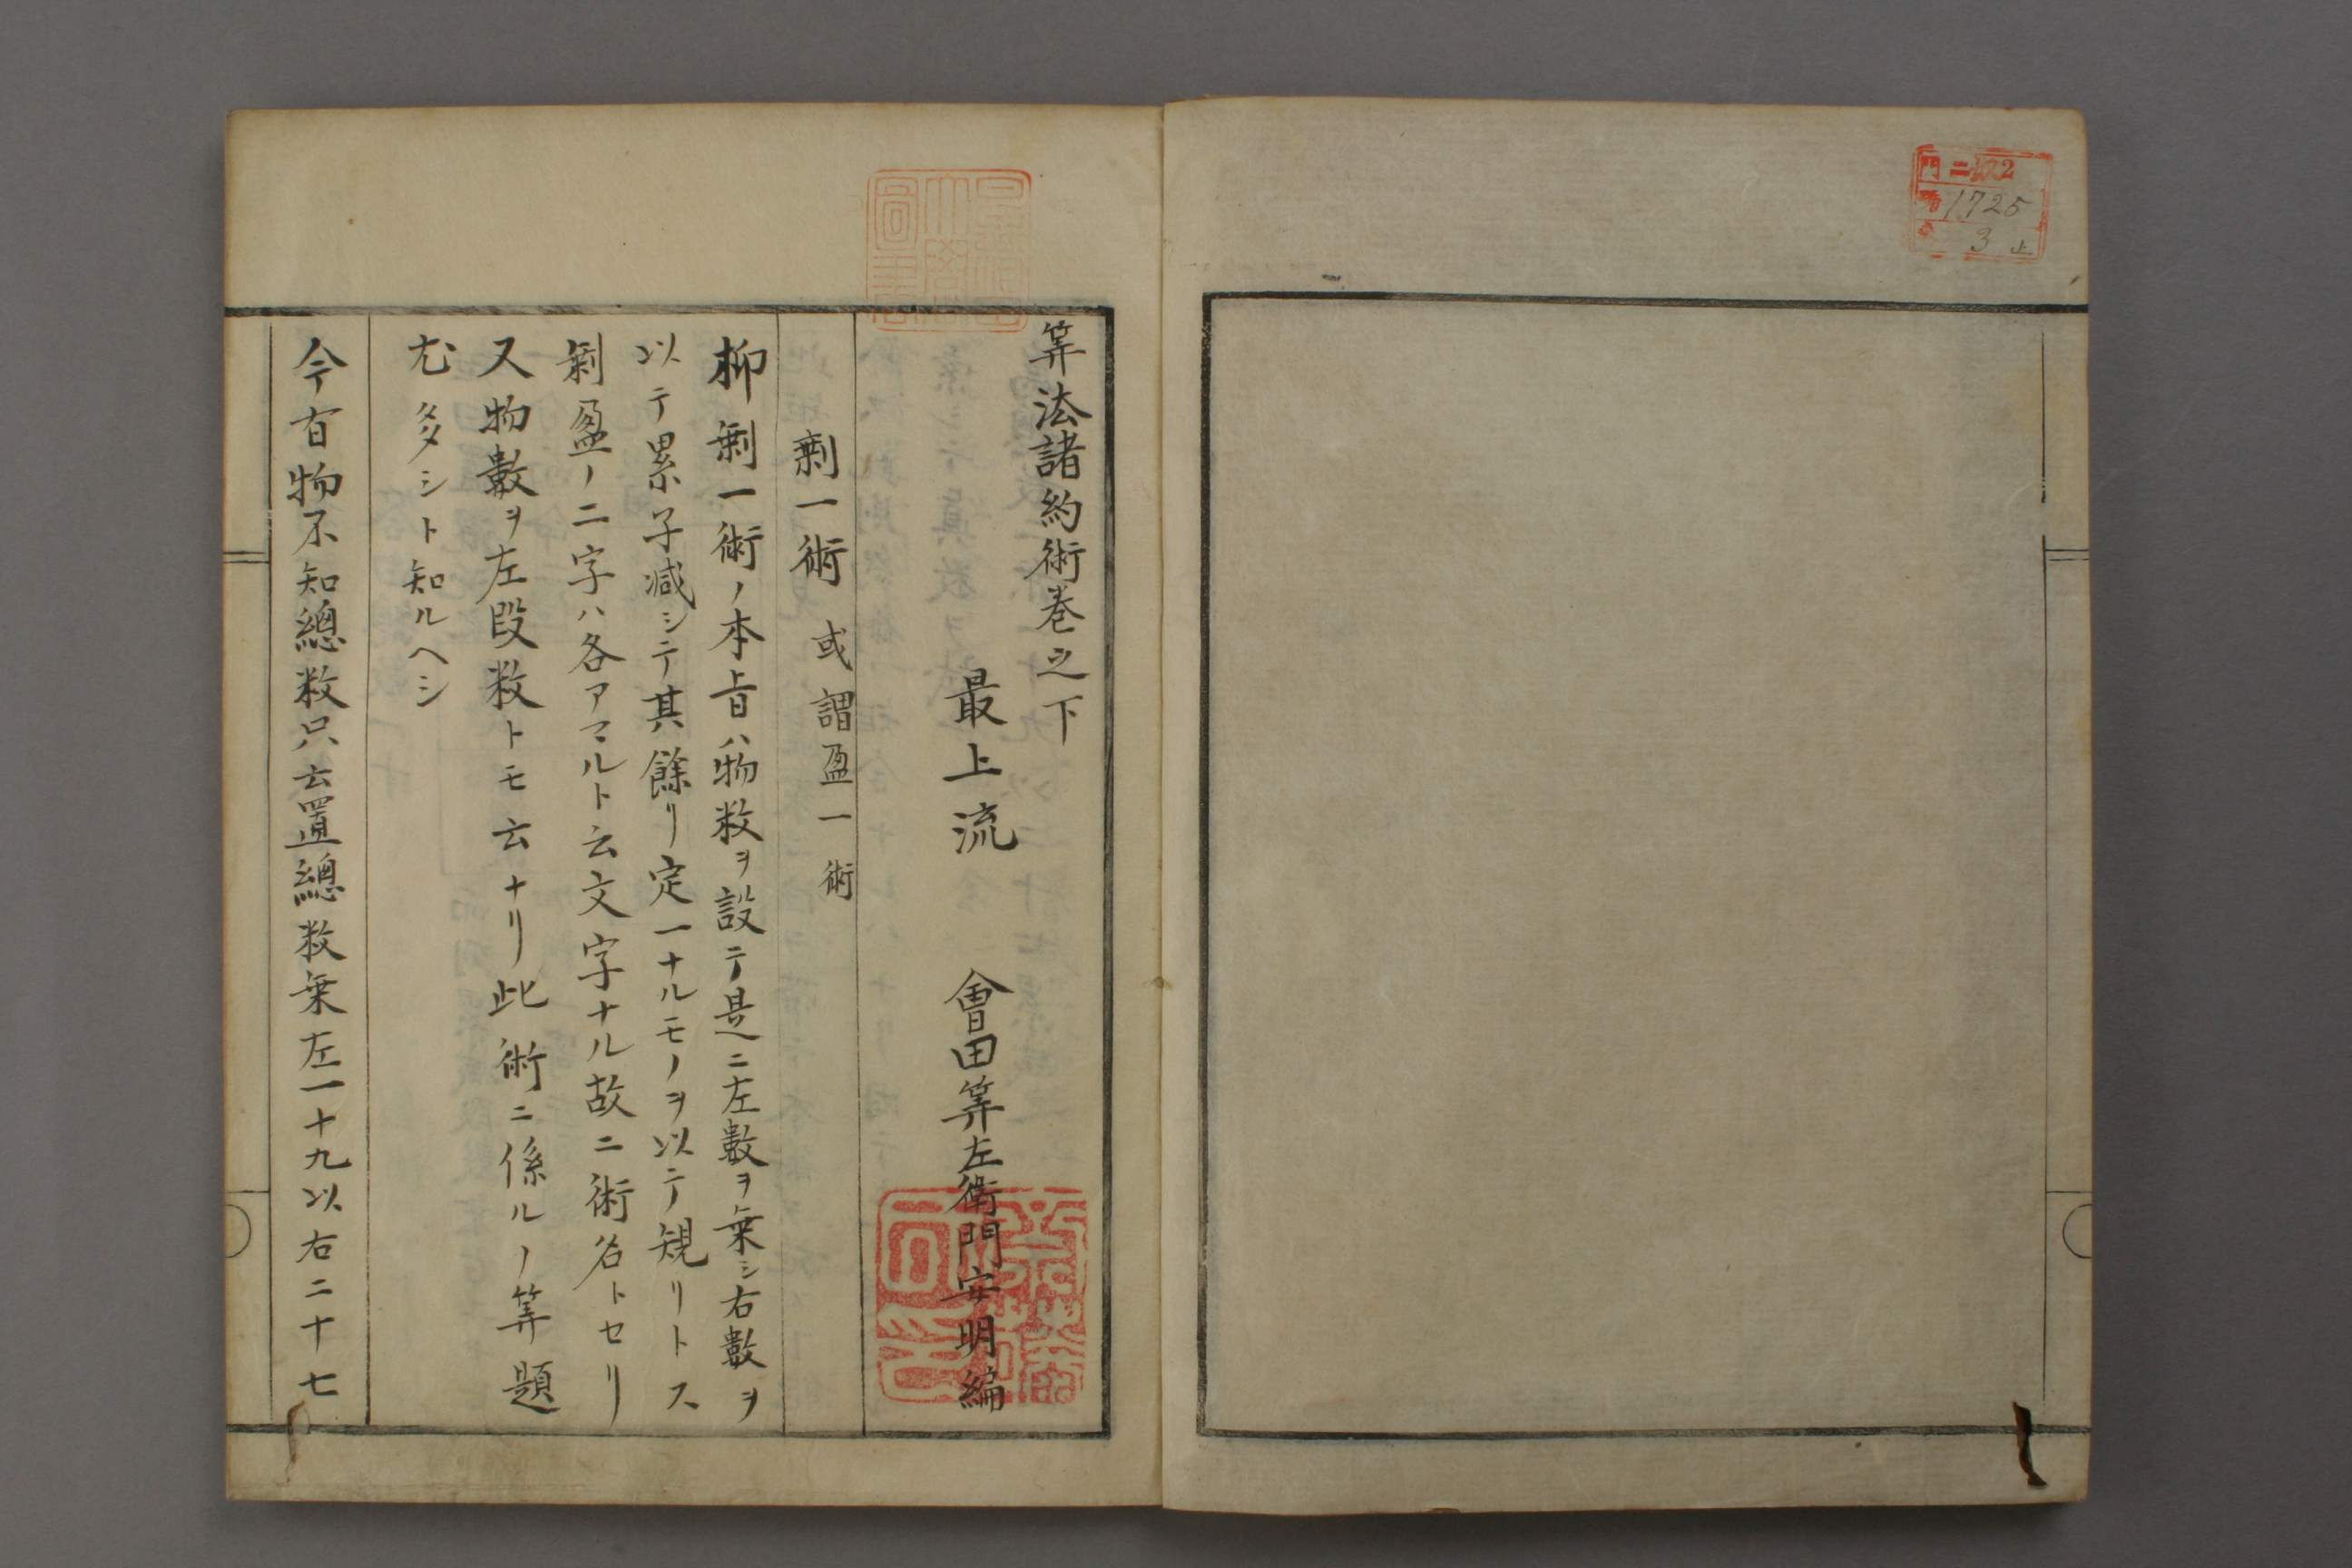 門 ニ 402
号 1725
巻 3 止
算法諸約術巻之下
最上流 會田算左衛門安明編
剰一術 或謂盈一術
抑剰一術ノ本旨ハ物数ヲ設テ是ニ左數ヲ乗シ右數ヲ
以テ累子減シテ其餘リ定一ナルモノヲ以テ規リトス
剰盈ノ二字ハ各アマルト云文字ナル故ニ術名トセリ
又物數ヲ左段数トモ云ナリ此術ニ係ルノ算題
尤多シト知ルヘシ
今有物不知總数只云置總数乗左一十九以右二十七